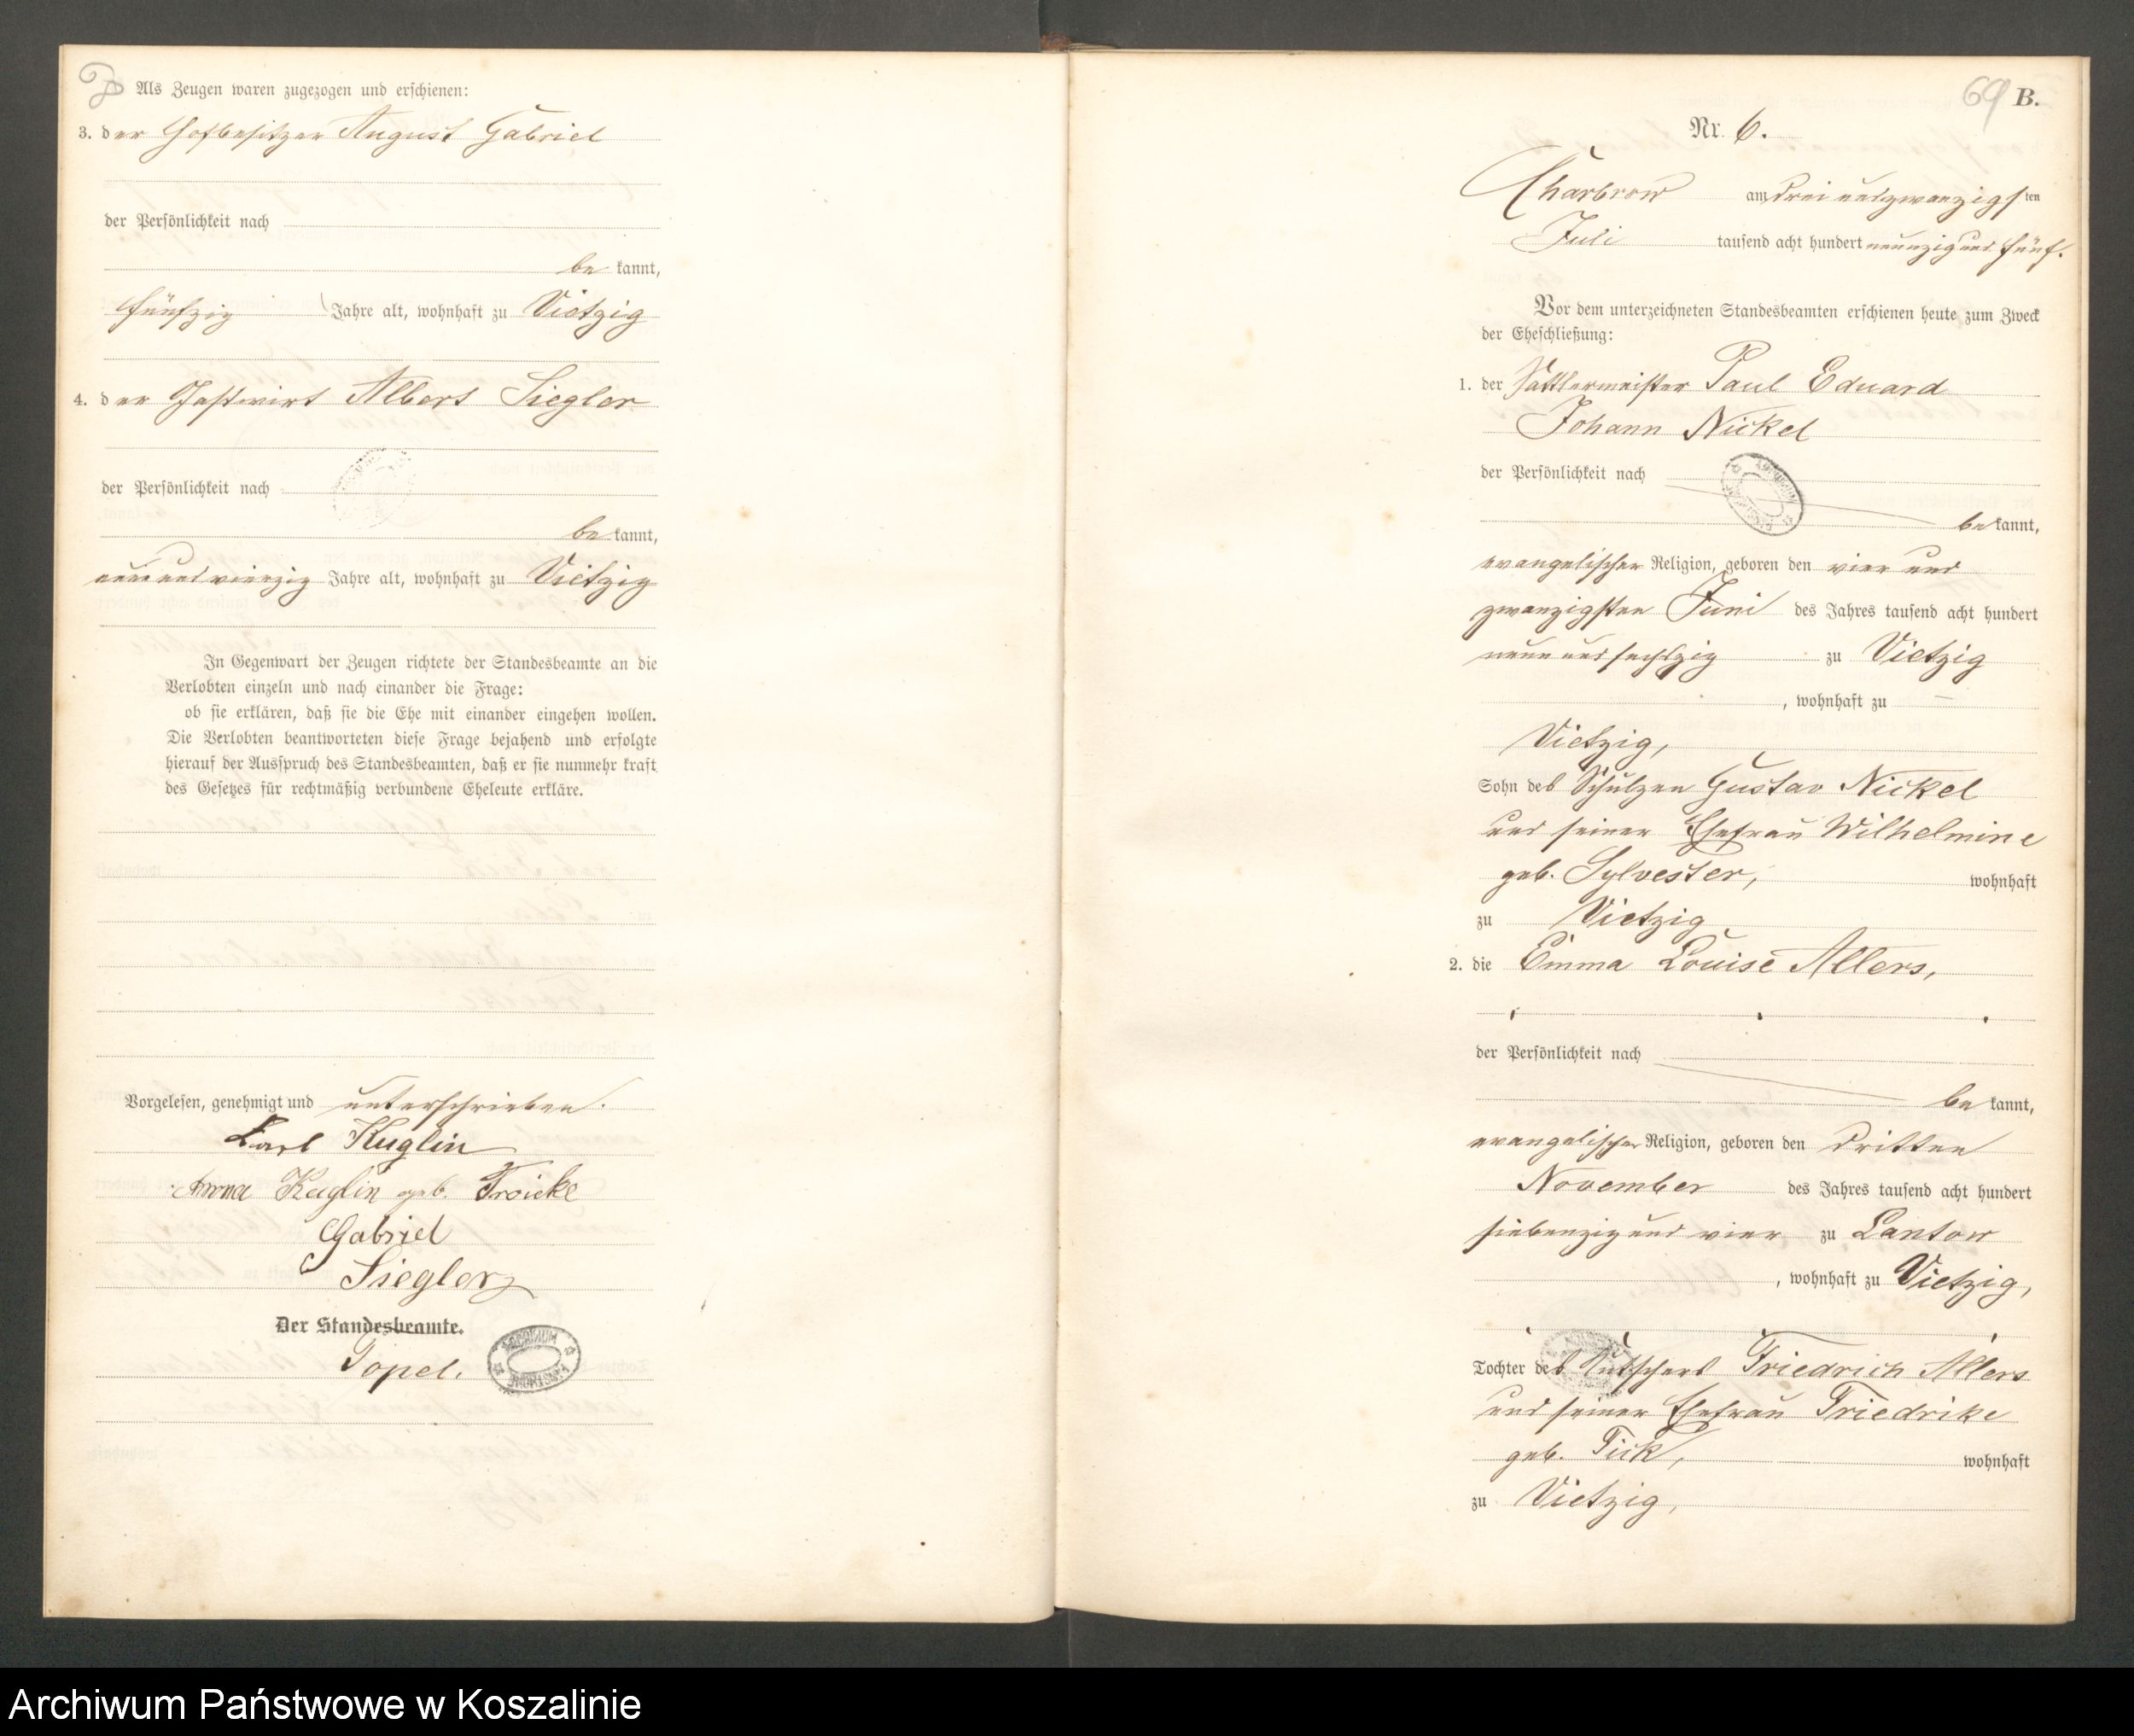 Als Zeugen waren zugezogen und erschienen:
3. der Hofbesitzer August Gabriel
der Persönlichkeit nach
be kannt,
fünfzig Jahre alt, wohnhaft zu Vietzig
4. der Gastwirt Albert Siegler
der Persönlichkeit nach
be kannt,
neun und vierzig Jahre alt, wohnhaft zu Vietzig
In Gegenwart der Zeugen richtete der Standesbeamte an die
Verlobten einzeln und nach einander die Frage:
ob sie erklären, daß sie die Ehe mit einander eingehen wollen.
Die Verlobten beantworteten diese Frage bejahend und erfolgte
hierauf der Ausspruch des Standesbeamten, daß er sie nunmehr kraft
des Gesetzes für rechtmäßig verbundene Eheleute erkläre.
Vorgelesen, genehmigt und unterschrieben.
Karl Kuglin
Anna Kuglin geb. Froicke
Gabriel
Siegler
Der Standesbeamte.
Topel.
69 B.
Nr. 6.
Charbrow am drei und zwanzigsten
Juli tausend acht hundert neunzig und fünf.
Vor dem unterzeichneten Standesbeamten erschienen heute zum Zweck
der Eheschließung:
1. der Sattlermeister Paul Eduard
Johann Nickel
der Persönlichkeit nach
be kannt,
evangelischer Religion, geboren den vier und
zwanzigsten Juni des Jahres tausend acht hundert
neun und sechszig zu Vietzig
, wohnhaft zu
Vietzig,
Sohn des Schulzen Gustav Nickel
und seiner Ehefrau Wilhelmine
geb. Sylvester, wohnhaft
zu Vietzig
2. die Emma Louise Allers,
der Persönlichkeit nach
be kannt,
evangelischer Religion, geboren den dritten
November des Jahres tausend acht hundert
siebenzig und vier zu Lantow
, wohnhaft zu Vietzig,
Tochter des Kutschers Friedrich Allers
und seiner Ehefrau Friedrike
geb. Tick, wohnhaft
zu Vietzig,
Archiwum Państwowe w Koszalinie